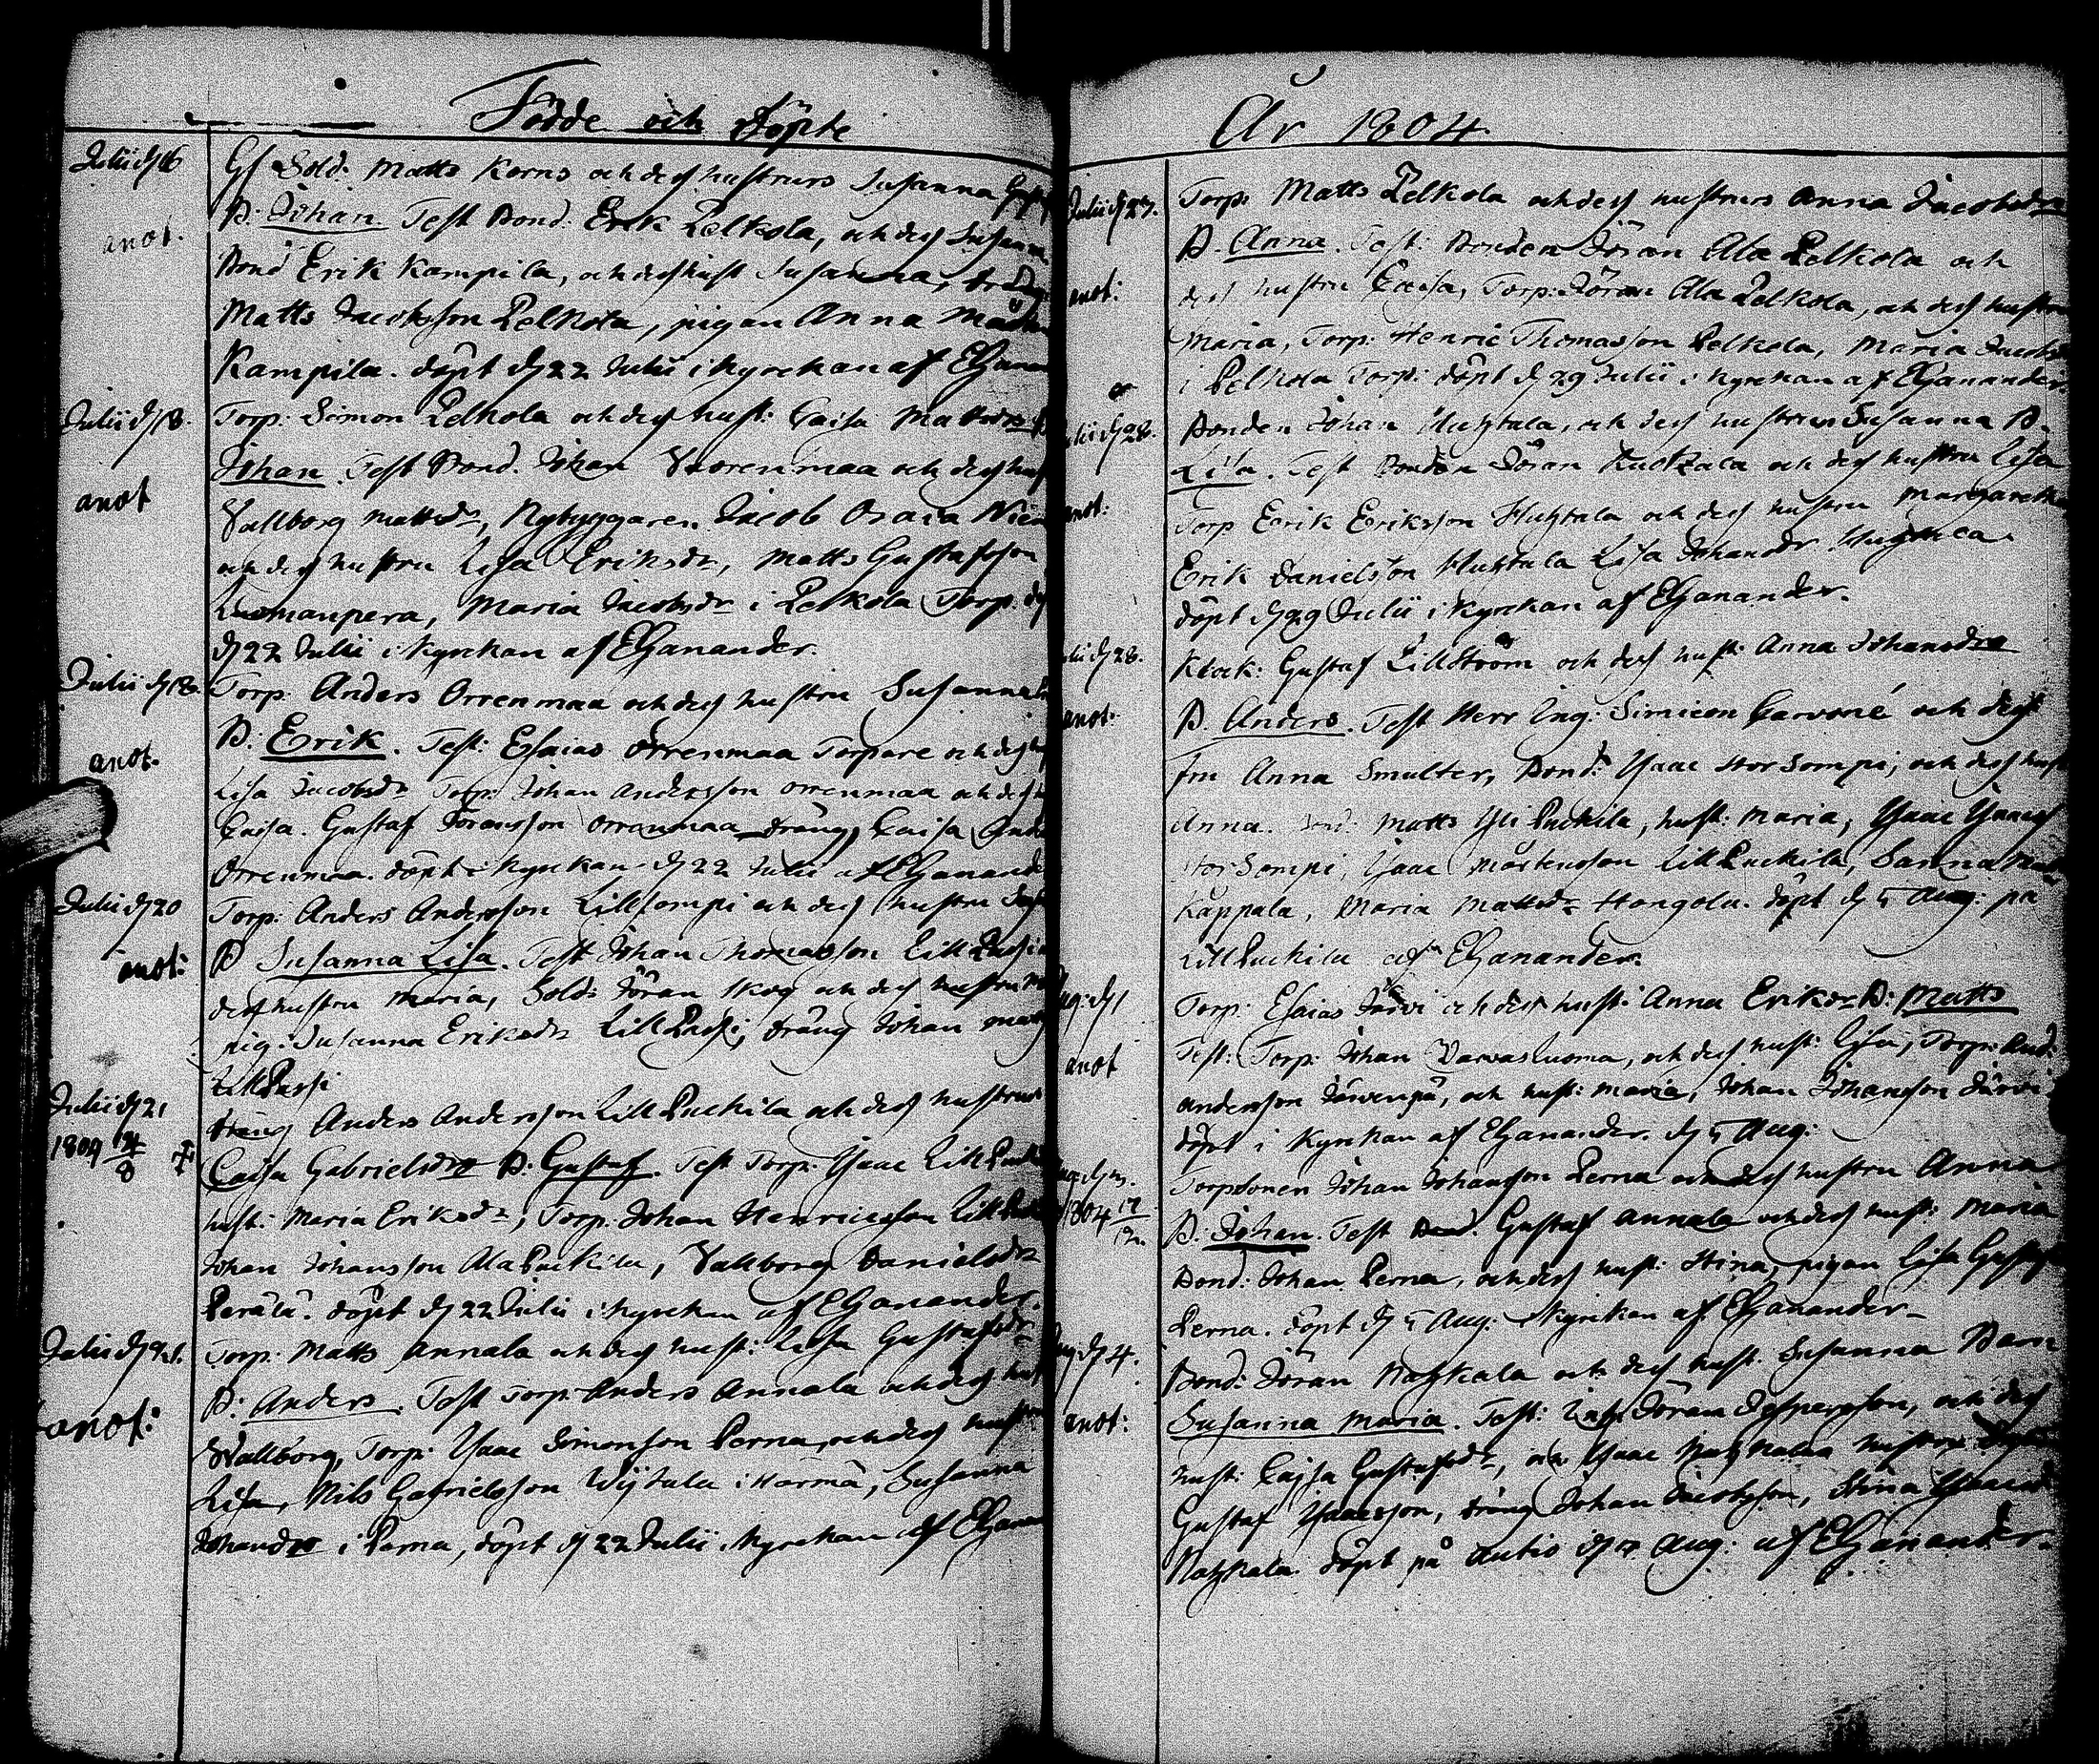 Födde och döpte
Julii d 16 Gf Sold: Matts Korns och dess hustrurs Susanna
anot. B: Johan. Test Bond. Erik Pelkola, och dess Susanna
Bond Erik Kampila, och dess hust Susanna, dräng
Matts Jacobsson Pelkola, pigan Anna
Kampila. döpt d 22 Julii i kyrckan af EGanan
Julii d 18. Torp: Simon Pelkola och dess hust: Caisa Mattsdr B
anot Johan. Test Bond. Johan Vuorenmaa och dess hust
Vallborg Mattsdr, Nybyggaren Jacob
och dess hustru Lisa Eriksdr, Matts Gustafsson
Luomanpera, Maria Jacobsdr i Pelkola Torp. dpt
d 22 Julii i kyrckan af EGanander.
Julii d 18. Torp. Anders Orrenmaa och dess hustru Susanna
anot. B: Erik. Test: Esaias Orrenmaa Torpare och dess
Lisa Jacobsdr Torp: Johan Andersson Orrenmaa och dess
Caisa. Gustaf Göransson Orrenmaa dräng, Caisa
Orrenmaa. döpt i kyrckan d 22 Julii af EGanande
Julii d 20 Torp: Anders Andersson Lillsompi och dess hustru
anot: B Susanna Lisa. Test Johan Thomasson Lill
dess hustru Maria, Sold: Jöran Skog och dess hustru
pig: Susanna Eriksdr Lill Passi, dräng Johan
Lill Passi
Julii d 21 dräng Anders Andersson Lill Puckila och dess hustrus
1809 4/8 Caisa Gabrielsdr B: Gustaf. Test Torp. Ysaac Lill
hust: Maria Eriksdr, Torp: Johan Henricsson Lill
Johan Johansson Ala Puckila, Vallborg Danielsdr
Perälä. döpt d 22 Julii i kyrckan af EGanander.
Julii d 21. Torp: Matts Annala och dess hust: Lisa Gustafsdr
anot: B: Anders. Test Torp Anders Annala och dess hust
Wallborg, Torp: Ysaac Simonsson Perna, och dess hustru
Lisa, Nils Gabrielsson Wijtala i Härmä, Susanna
Johansdr i Perna, döpt d 22 Julii i kyrckan af EGanan
År 1804
Julii d 27. Torp: Matts Pelkola och dess hustrurs Anna Jacobsdr
B. Anna. Test: Bonden Jöran Ala Pelkola och
anot: dess hustru Caisa, Torp: Jöran Ala Pelkola, och dess hustru
Maria, Torp: Henric Thomasson Pelkola, Maria Jacobs
i Pelkola Torp: döpt d 29 Julii i kyrckan af EGanander.
Julii d 28. Bonden Johan Huhtala, och dess hustrus Susanna B.
Lisa. Test Bonden Jöran och dess hustru Lisa
anot: Torp Eerik Eriksson Huhtala och dess hustru Margareta
Erik Danielsson Huhtala Lisa Johansdr
döpt d 29 Julii i kyrckan af EGanander.
Julii d 28. Klock: Gustaf Lillström och dess hust: Anna Johansdr
anot. B. Anders. Test Herr Ing: Simieon Carvoné och dess
fru Anna Smulter, Bond: Ysaac Storsompi, och dess hust
Anna. Bond: Matts Yli Puckila, hust: Maria, Ysaac
Storsompi, Ysaac Mårtensson Lill Puckila, Sanna
Kåppala, Maria Mattsdr Hongola. döpt d 5 Aug: på
Lill Puckila af EGanander.
Aug: d 1 Torp: Esaias Järvi och dess hust: Anna Eriksdr B: Matts
anot Test: Torp: Johan Varvasluoma, och dess hust: Lisa, Torp: And:
Andersson Järvenpä, och hust: Maria, Johan Johansson Järvi
döpt i kyrckan af EGanander. d 5 Aug:
Torpsonen Johan Johansson Perna och dess hustru Anna
1804 17/ B: Johan. Test Bond. Gustaf Annala och dess hust: Maria
Bond: Johan Perna, och dess hust: Stina, pigan Lisa
Perna. döpt d 5 Aug: kyrckan af EGanander
Aug: d 4. Bond: Jöran och dess hust. Susanna Barn
anot: Susanna Maria. Test: Jöran Jespersson, och dess
hust: Cajsa Gustafsdr, och Ysaac hustru
Gustaf Ysaacsson, dräng Johan Jacobsson, Stina
döpt på Autio d Aug: af EGanander.